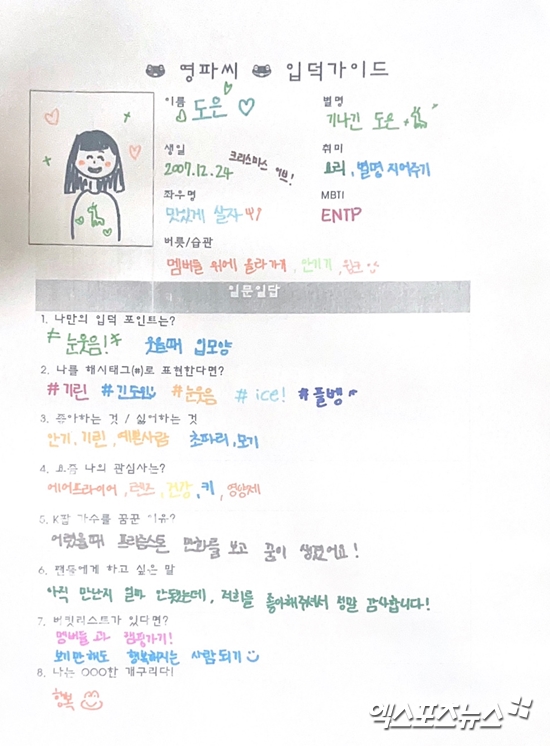 영파씨 입덕가이드
이름 도은 ♡
별명 기나긴 도은
생일 2007.12.24 크리스마스 이브!
취미 요리, 별명 지어주기
좌우명 맛있게 살자
MBTI ENTP
버릇/습관
멤버들 위에 올라가기, 안기기, 윙크
일문일답
1. 나만의 입덕 포인트는?
눈웃음! 웃을때 입모양
2. 나를 해시태그(#)로 표현한다면?
#기린 #긴도은 #눈웃음 #ice! #플병
3. 좋아하는 것 / 싫어하는 것
안기, 기린, 예쁜사람 초파리, 모기
4. 요즘 나의 관심사는?
에어드라이어, 렌즈, 건강, 키, 영양제
5. K팝 가수를 꿈꾼 이유?
어렸을때 프리즘스톤 만화를 보고 꿈이 생겼어요!
6. 팬들에게 하고 싶은 말
아직 만난지 얼마 안됐는데, 저희를 좋아해주셔서 정말 감사합니다!
7. 버킷리스트가 있다면?
멤버들과 캠핑가기!
보기만해도 행복해지는 사람되기
8. 나는 OOO한 개구리다!
행복
엑스포츠뉴스